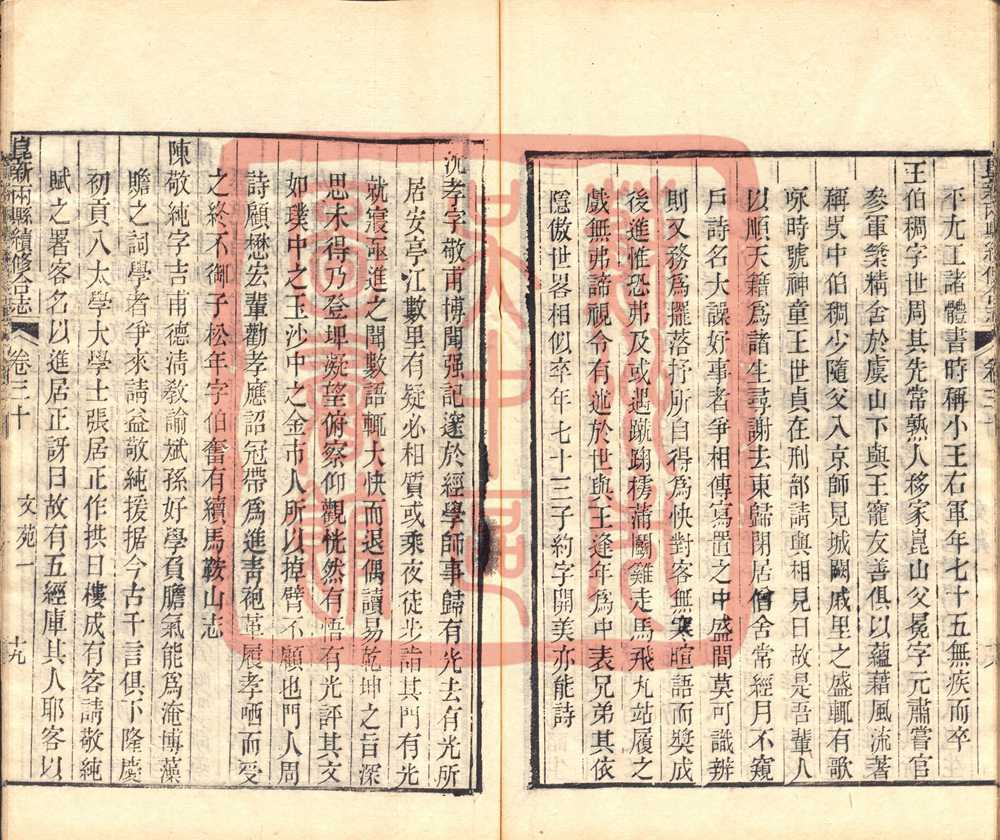 不尢工諸體書時稱小王右軍年七十五無疾而卒
王伯稠字世周其先常熟人移家崑山父冕字元肅嘗官
參軍築精舍於虞山下與王寵友善俱以蘊藉風流著
稱吳中伯稠少隨父入京師見城闕戚里之盛輒有歌
咏時號神童王世貞在刑部請與相見曰故是吾輩人
以順天籍爲諸生尋謝去東歸閉居僧舍常經月不窺
戶詩名大譟好事者爭相傳寫置之中盛間莫可識辨
則又務爲擺落抒所自得爲快對客無寒暄語而奬成
後進惟恐弗及或遇蹴踘樗蒲鬭雞走馬飛丸跕履之
戲無弗諦視令有述於世與王逢年爲中表兄弟其依
隱傲世畧相似卒年七十三子約字開美亦能詩
沈孝字敬甫博聞强記邃於經學師事歸有光去有光所
居安亭江數里有疑必相質或乘夜徒步詣其門有光
就寢亟進之聞數語輒大快而退偶讀易乾坤之旨深
思未得乃登埤凝望俯察仰觀恍然有悟有光評其文
如璞中之玉沙中之金市人所以掉臂不顧也門人周
詩顧懋宏輩勸孝應詔冠帶爲進靑袍革履孝哂而受
之終不御子松年字伯奮有續馬鞍山志
陳敬純字吉甫德淸敎諭斌孫好學負膽氣能爲淹博藻
贍之詞學者爭來請益敬純援据今古千言俱下隆慶
初貢入太學大學士張居正作拱日樓成有客請敬純
賦之署客名以進居正訝曰故有五經庫其人耶客以
崑新兩縣續修合志
卷三十
文苑一
十九